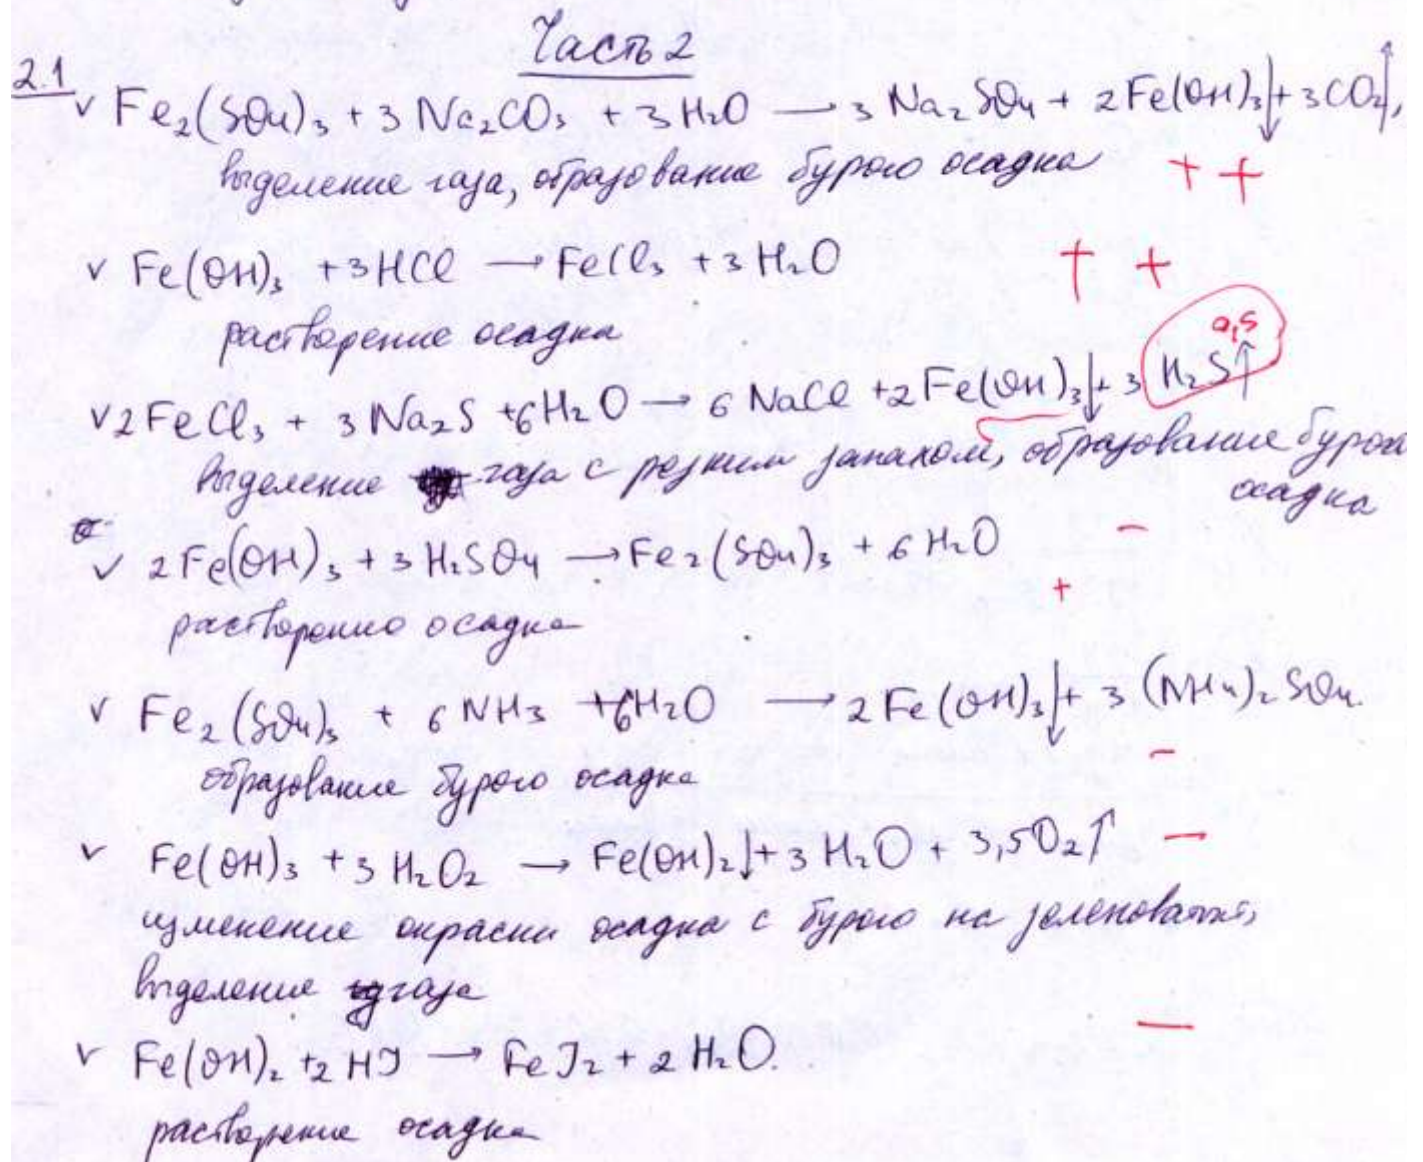 Часть 2
2.1
v Fe₂(SO₄)₃ + 3 Na₂CO₃ + 3 H₂O → 3 Na₂SO₄ + 2Fe(OH)₃↓ + 3CO₂↑,
выделение газа, образование бурого осадка + +
v Fe(OH)₃ + 3HCl → FeCl₃ + 3 H₂O + +
растворение осадка
v 2 FeCl₃ + 3 Na₂S + 6H₂O → 6 NaCl + 2 Fe(OH)₃↓ + 3 H₂S↑
выделение газа с резким запахом, образование бурого
осадка
v 2Fe(OH)₃ + 3 H₂SO₄ → Fe₂(SO₄)₃ + 6 H₂O −
растворение осадка +
v Fe₂(SO₄)₃ + 6 NH₃ + 6H₂O → 2 Fe(OH)₃↓ + 3 (NH₄)₂SO₄.
образование бурого осадка −
v Fe(OH)₃ + 3 H₂O₂ → Fe(OH)₂↓ + 3 H₂O + 3,5O₂↑ −
изменение окраски осадка с бурого на зеленоватый,
выделение газа
v Fe(OH)₂ + 2 HJ → FeJ₂ + 2 H₂O. −
растворение осадка